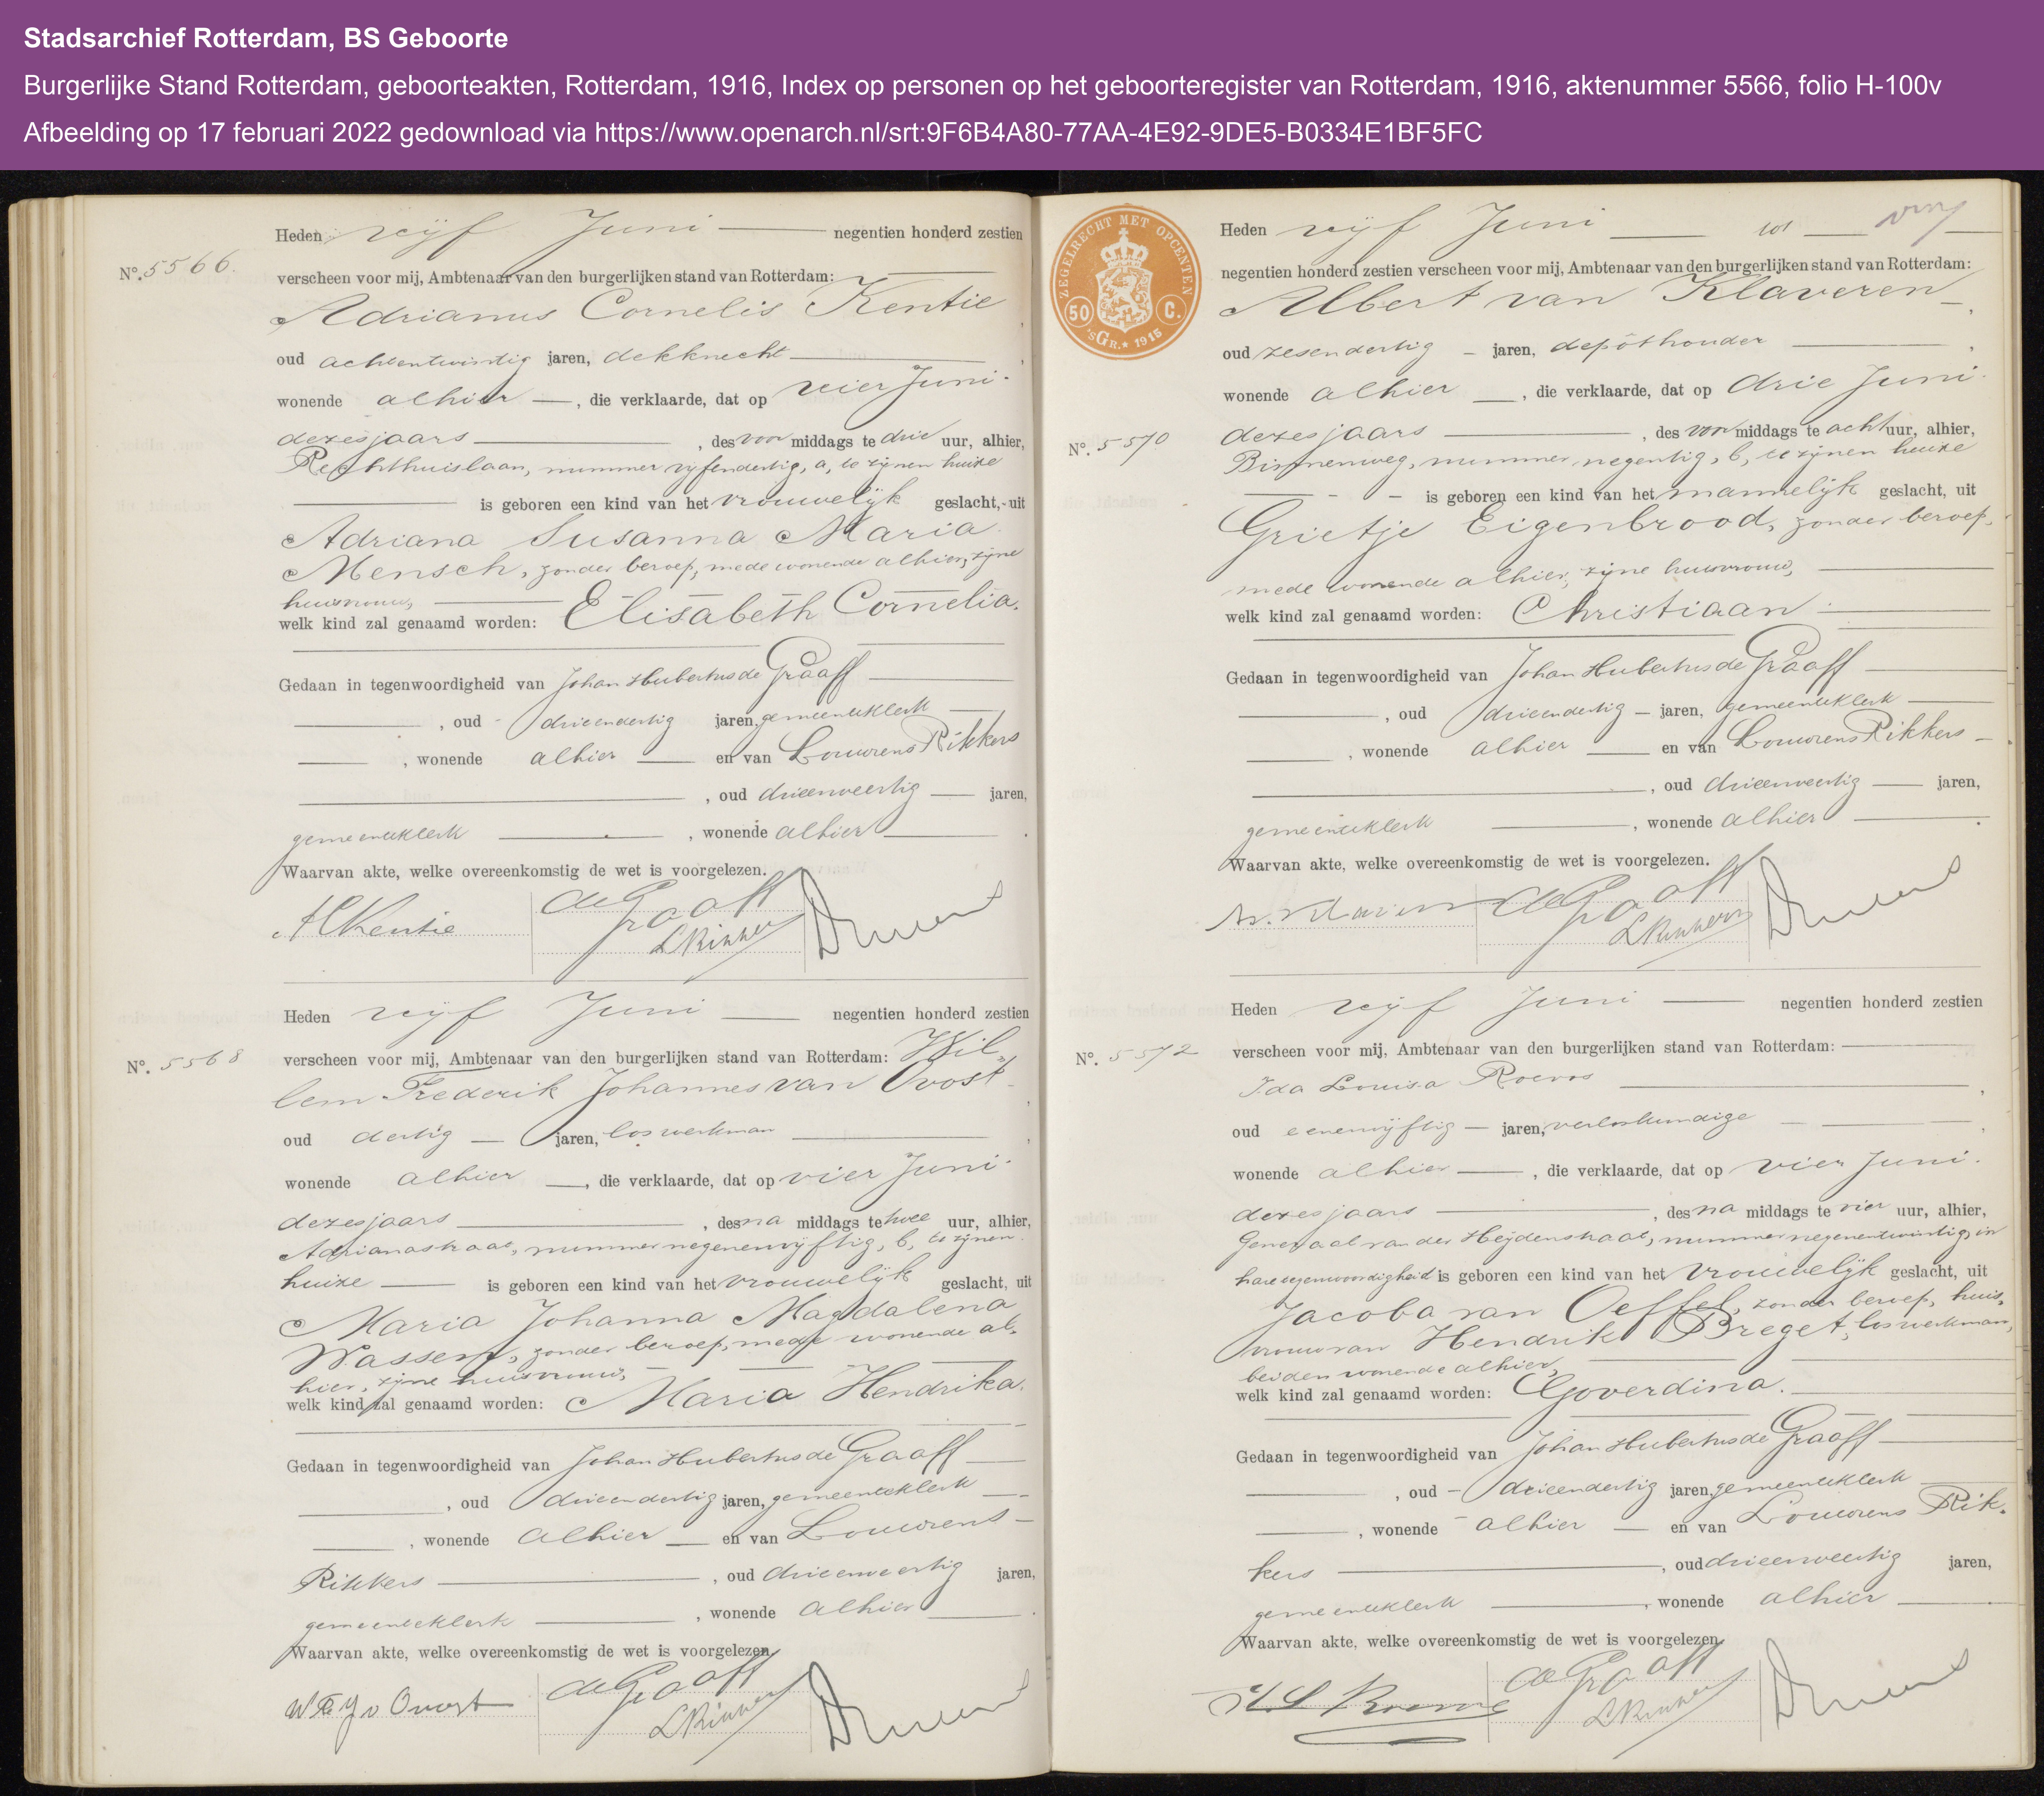 Stadsarchief Rotterdam, BS Geboorte
Burgerlijke Stand Rotterdam, geboorteakten, Rotterdam, 1916, Index op personen op het geboorteregister van Rotterdam, 1916, aktenummer 5566, folio H-100v
Afbeelding op 17 februari 2022 gedownload via https://www.openarch.nl/srt:9F6B4A80-77AA-4E92-9DE5-B0334E1BF5FC
Heden vijf Juni negentien honderd zestien
No. 5566.
verscheen voor mij, Ambtenaar van den burgerlijken stand van Rotterdam:
Adrianus Cornelis Kentie,
oud achtentwintig jaren, dekknecht,
wonende alhier, die verklaarde, dat op vier Juni
dezes jaars, des voor middags te drie uur, alhier,
Rechthuislaan, nummer vijfendertig, a, te zijnen huize
is geboren een kind van het vrouwelijk geslacht, uit
Adriana Susanna Maria
Mensch, zonder beroep, mede wonende alhier, zijne
huisvrouw,
welk kind zal genaamd worden: Elisabeth Cornelia.
Gedaan in tegenwoordigheid van Johan Hubertus de Graaff
, oud drieendertig jaren, gemeenteklerk
, wonende alhier en van Louwrens Rikkers
, oud drieenveertig jaren,
gemeenteklerk, wonende alhier.
Waarvan akte, welke overeenkomstig de wet is voorgelezen.
ACKentie de Graaff
LRikkers
Heden vijf Juni negentien honderd zestien
No. 5568
verscheen voor mij, Ambtenaar van den burgerlijken stand van Rotterdam: Wil=
lem Frederik Johannes van Ovost,
oud dertig jaren, los werkman,
wonende alhier, die verklaarde, dat op vier Juni
dezes jaars, des na middags te twee uur, alhier,
Adrianastraat, nummer negenenvijftig, b, te zijnen
huize is geboren een kind van het vrouwelijk geslacht, uit
Maria Johanna Magdalena
Wassem, zonder beroep, mede wonende al=
hier, zijne huisvrouw,
welk kind zal genaamd worden: Maria Hendrika.
Gedaan in tegenwoordigheid van Johan Hubertus de Graaff
, oud drieendertig jaren, gemeenteklerk
, wonende alhier en van Louwrens
Rikkers, oud drieenveertig jaren,
gemeenteklerk, wonende alhier.
Waarvan akte, welke overeenkomstig de wet is voorgelezen.
WFJ v Ovost de Graaff
LRikkers
ZEGELRECHT MET OPCENTEN
50 C.
'sGR. 1915
Heden vijf Juni
negentien honderd zestien verscheen voor mij, Ambtenaar van den burgerlijken stand van Rotterdam:
Albert van Klaveren,
oud zesendertig jaren, depôthouder,
wonende alhier, die verklaarde, dat op drie Juni
No. 5570
dezes jaars, des voor middags te acht uur, alhier,
Binnenweg, nummer negentig, b, te zijnen huize
is geboren een kind van het mannelijk geslacht, uit
Grietje Eigenbrood, zonder beroep,
mede wonende alhier, zijne huisvrouw,
welk kind zal genaamd worden: Christiaan.
Gedaan in tegenwoordigheid van Johan Hubertus de Graaff
, oud drieendertig jaren, gemeenteklerk
, wonende alhier en van Louwrens Rikkers
, oud drieenveertig jaren,
gemeenteklerk, wonende alhier.
Waarvan akte, welke overeenkomstig de wet is voorgelezen.
de Graaff
LRikkers
Heden vijf Juni negentien honderd zestien
No. 5572
verscheen voor mij, Ambtenaar van den burgerlijken stand van Rotterdam:
Ida Louisa,
oud eenenvijftig jaren, verloskundige,
wonende alhier, die verklaarde, dat op vier Juni
dezes jaars, des na middags te vier uur, alhier,
Generaal van der Heijdenstraat, nummer negenentwintig, in
hare tegenwoordigheid is geboren een kind van het vrouwelijk geslacht, uit
Jacoba van Oeffel, zonder beroep, huis=
vrouw van Hendrik Breget, los werkman,
beiden wonende alhier,
welk kind zal genaamd worden: Goverdina.
Gedaan in tegenwoordigheid van Johan Hubertus de Graaff
, oud drieendertig jaren, gemeenteklerk
, wonende alhier en van Louwrens Rik=
kers, oud drieenveertig jaren,
gemeenteklerk, wonende alhier.
Waarvan akte, welke overeenkomstig de wet is voorgelezen.
de Graaff
LRikkers